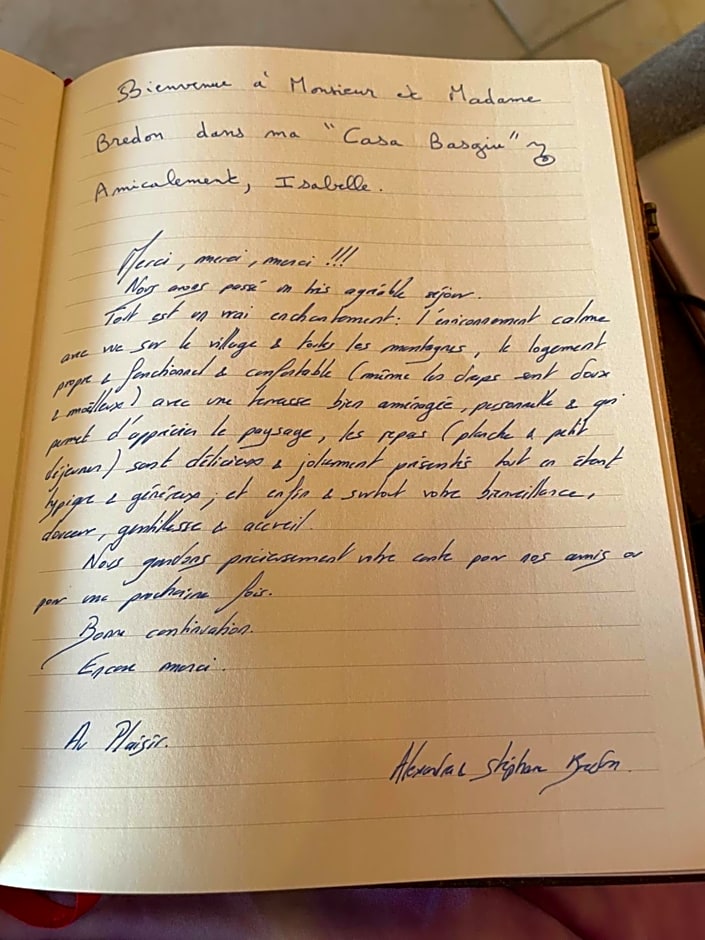 Bienvenue à Monsieur et Madame
Bredon dans ma "Casa Basgiu"
Amicalement, Isabelle.
Merci, merci, merci !!!
Nous avons passé un très agréable séjour.
Tout est un vrai enchantement : l'environnement calme
avec vue sur le village & toutes les montagnes, le logement
propre & fonctionnel & confortable (même les draps sont doux
& moëlleux) avec une terrasse bien aménagée, personnelle & qui
permet d'apprécier le paysage, les repas (planche & petit
déjeuner) sont délicieux & joliment présentés tout en étant
typique & généreux ; et enfin & surtout votre bienveillance,
douceur, gentillesse & accueil.
Nous gardons précieusement votre carte pour nos amis ou
pour une prochaine fois.
Bonne continuation.
Encore merci.
Au Plaisir.
Alexandra & Stéphane Bredon.